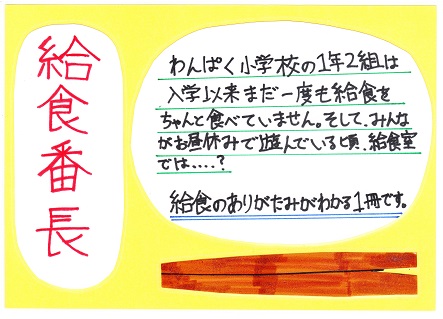 給食番長
わんぱく小学校の1年2組は
入学以来まだ一度も給食を
ちゃんと食べていません。そして、みんな
がお昼休みで遊んでいる頃、給食室
では....?
給食のありがたみがわかる1冊です。